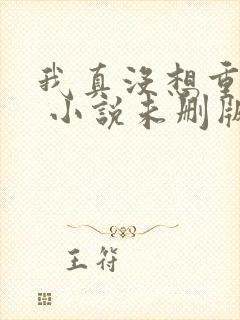 我真没想重
小说未删版
王符